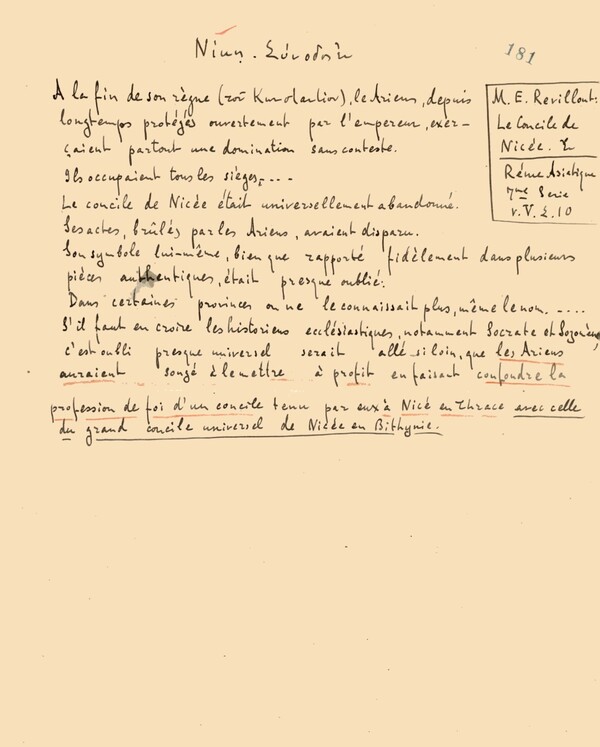 181
M. E. Revillout:
Le Concile de
Nicée.
7me Serie
A la fin de son règne (τοῦ), le Ariens, depuis
longtemps protégés ouvertement par l'empereur, exer-
çaient partout une domination sans conteste.
Ils occupaient tous les sièges, ...
Le concile de Nicée était universellement abandonné.
Ses actes, brûlés par les Ariens, avaient disparu.
Son symbole lui-même, bien que rapporté fidèlement dans plusieurs
pièces authentiques, était presque oublié.
Dans certaines provinces on ne le connaissait plus, même le nom. ....
S'il faut en croire les historiens ecclésiastiques, notamment Socrate et
c'est oubli presque universel serait allé si loin, que les Ariens
auraient songé à le mettre à profit en faisant confondre la
profession de foi d'un concile tenu par eux à Nicé en Thrace avec celle
du grand concile universel de Nicée en Bithynie.